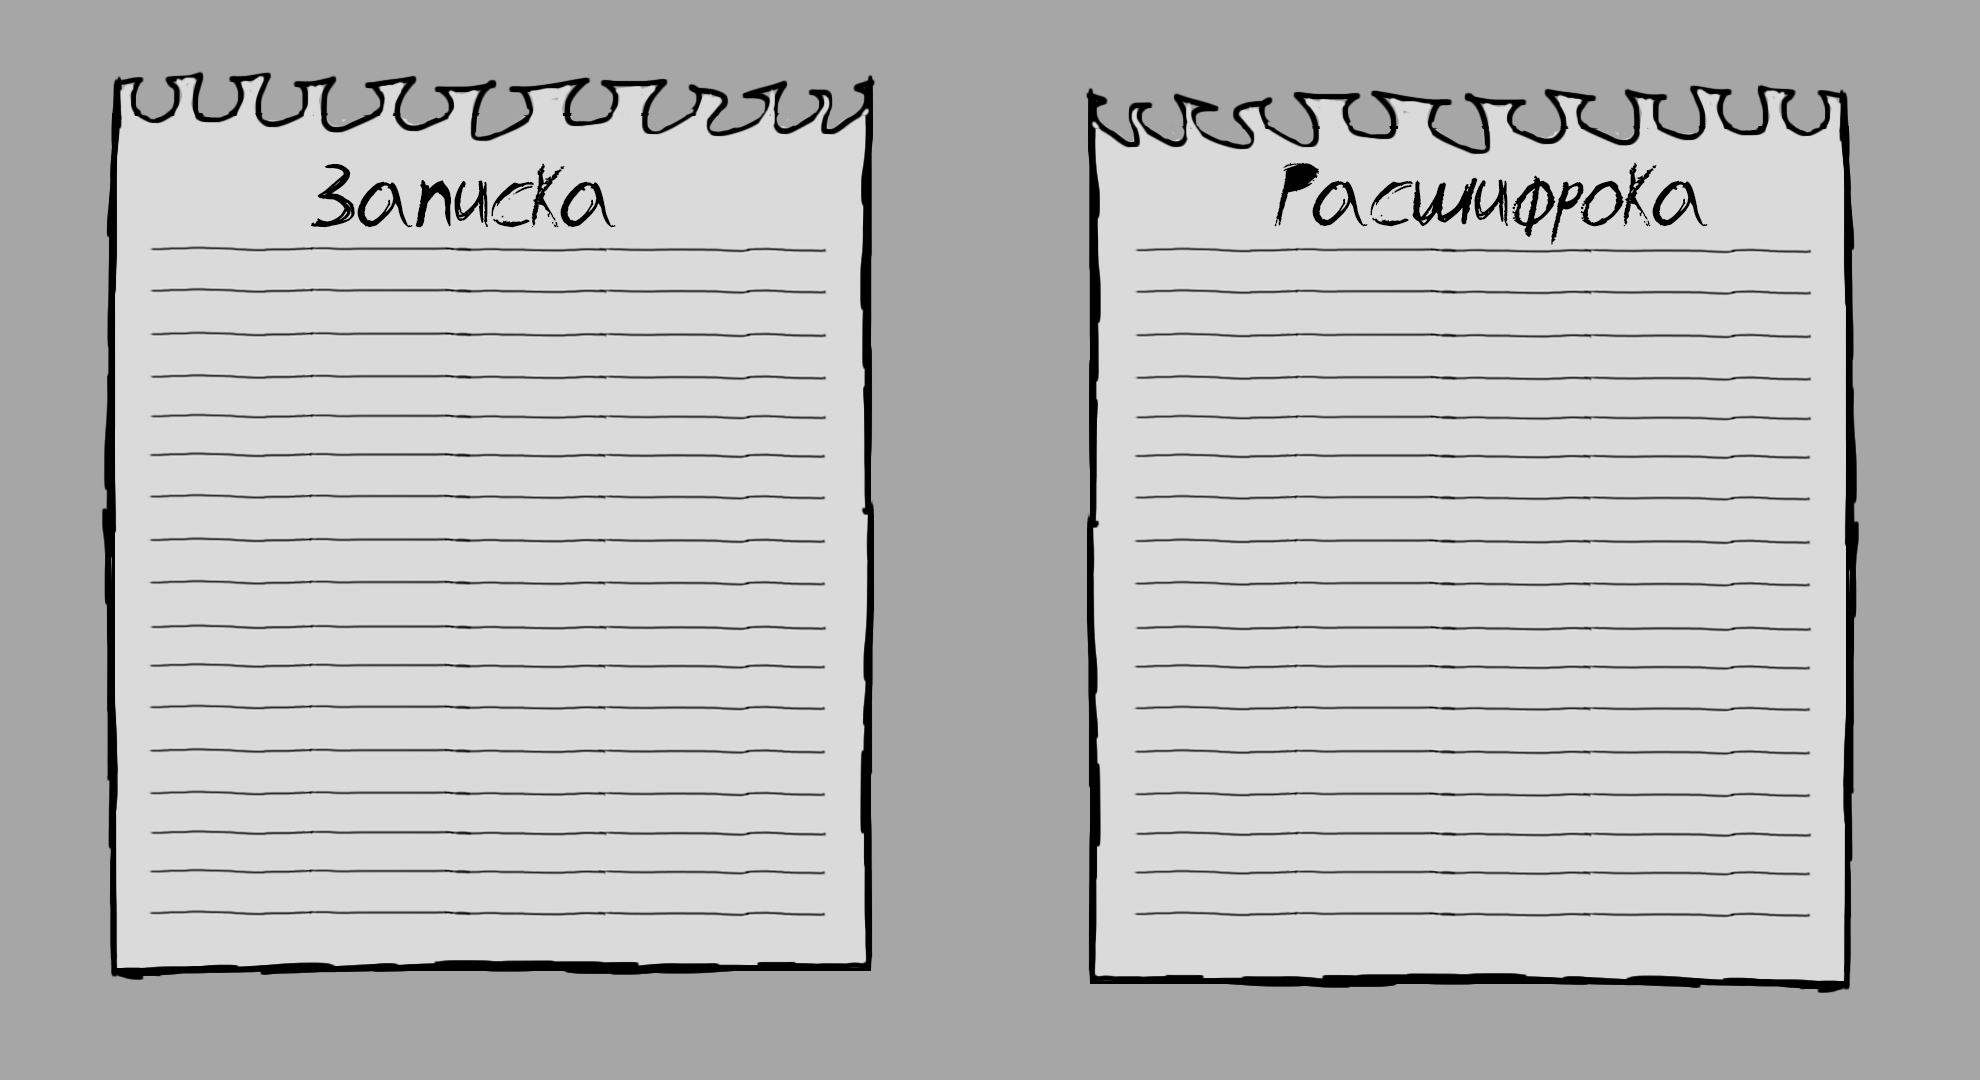 Записка
Расшифрока